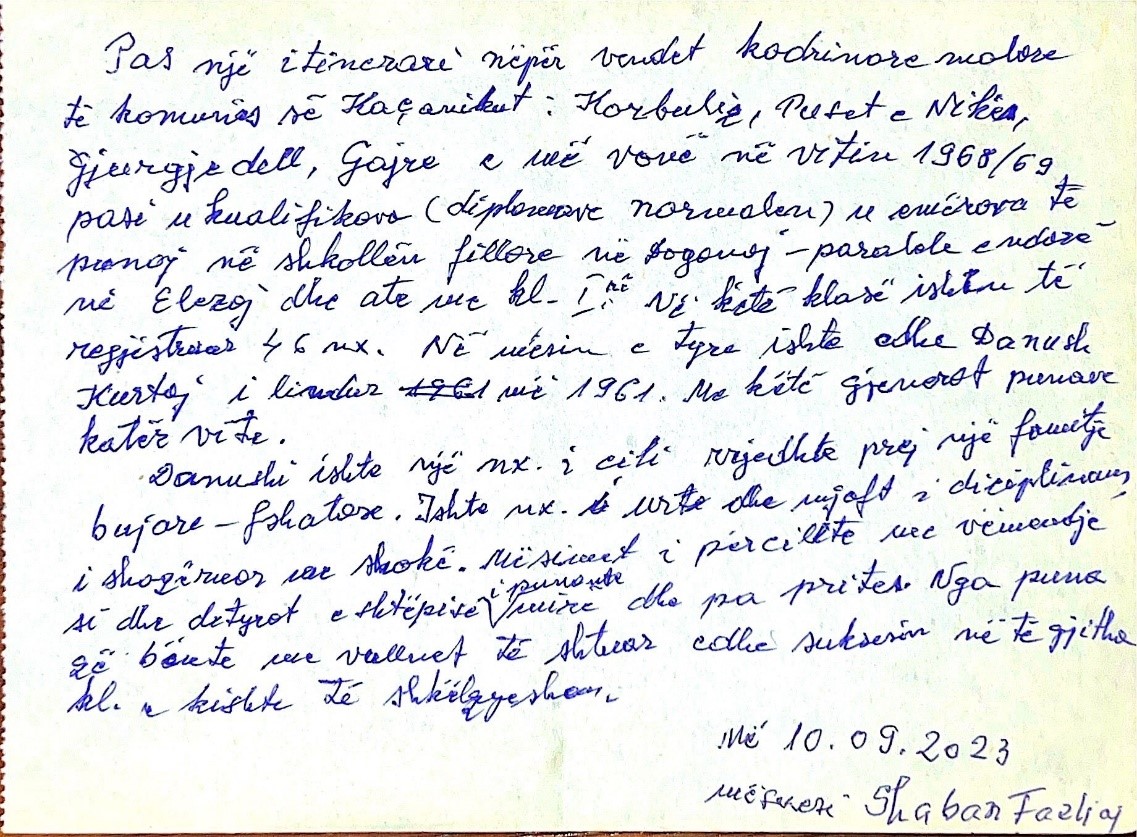 Pas një itinerari nëpër vendet kodrinore malore
të komunës së Kaçanikut: Korbuliq, Puset e Nikës,
Gjurgjedell, Gajre e më vonë në vitin 1968/69
pasi u kualifikova (diplomova normalen) u emërova të
punoj në shkollën fillore në Doganoj - paralele e ndarë
në Elezaj dhe atë me kl. I-rë Në këtë klasë ishin të
regjistruar 46 nx. Në mësin e tyre ishte edhe Danush
Kurtaj i lindur 1961 më 1961. Me këtë gjenerat punova
katër vite.
Danushi ishte një nx. i cili rrjedhte prej një familje
bujare - fshatare. Ishte nx. i urtë dhe mjaft i diciplinuar,
i shoqëruar me shokë. Mësimet i përcillte me vëmendje
si dhe detyrat e shtëpisë i punonte mirë dhe pa pritës. Nga puna
që bënte me vullnet të shtuar edhe suksesin në të gjitha
kl. e kishte të shkëlqyeshëm.
Më 10.09.2023
mësuesi Shaban Fazliaj